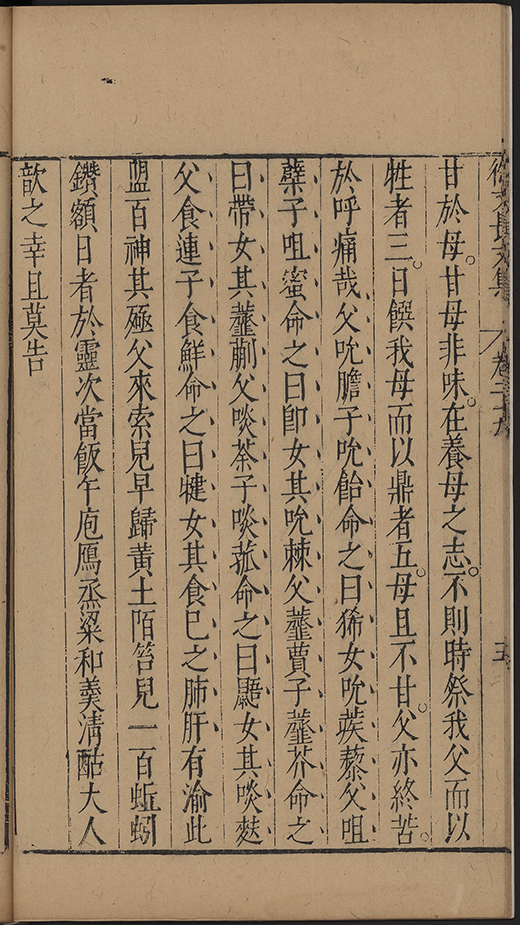 徐文長文集 卷二十九 五
甘於母。甘母非味。在養母之志。不則時祭我父而以
牲者三。日饌我母而以鼎者五。母且不甘。父亦終苦。
於呼痛哉父吮膽子吮飴命之曰豨女吮蒺藜父咀
櫱子咀蜜命之曰卽女其吮棘父虀蕢子虀芥命之
曰帶女其虀蒯父啖荼子啖菰命之曰鼯女其啖麩
父食連子食鮮命之曰犍女其食巳之肺肝有渝此
盟百神其殛父來索兒早歸黃土陌笞兒一百蚯蚓
鑽額日者於靈次當飯午庖鴈烝粱和羹淸酤大人
歆之幸且莫告